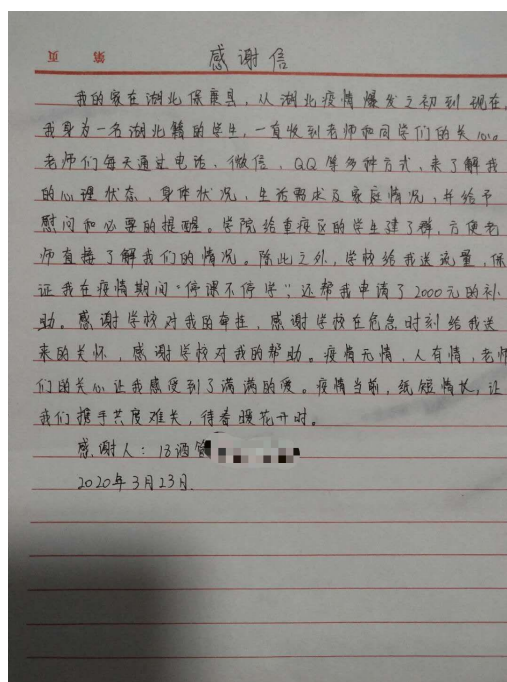 第 页
感谢信
我的家在湖北保康县，从湖北疫情爆发之初到现在，
我身为一名湖北籍的学生，一直收到老师和同学们的关心。
老师们每天通过电话、微信、QQ等多种方式，来了解我
的心理状态、身体状况、生活需求及家庭情况，并给予
慰问和必要的提醒。学院给重疫区的学生建了群，方便老
师直接了解我们的情况。除此之外，学校给我送流量，保
证我在疫情期间“停课不停学”，还帮我申请了2000元的补
助。感谢学校对我的牵挂，感谢学校在危急时刻给我送
来的关怀，感谢学校对我的帮助。疫情无情，人有情，老师
们的关心让我感受到了满满的爱。疫情当前，纸短情长，让
我们携手共度难关，待春暖花开时。
感谢人：18酒管
2020年3月23日